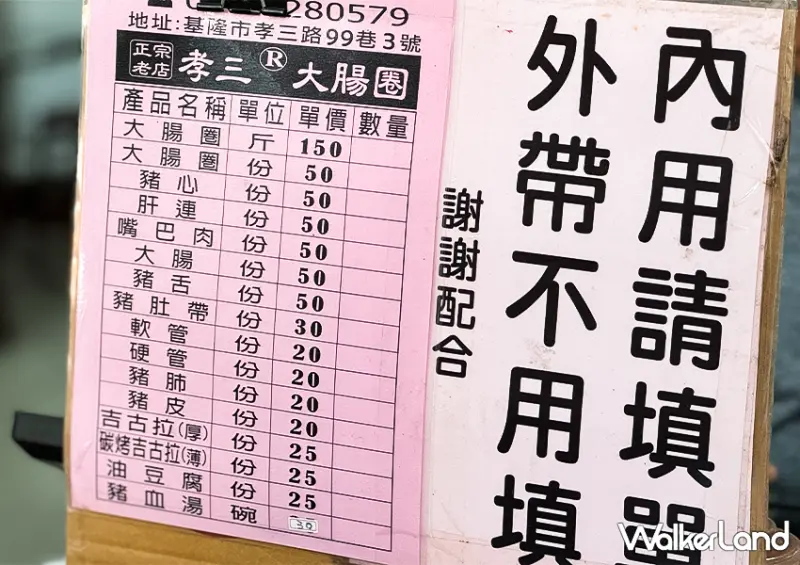 280579
地址:基隆市孝三路99巷3號
正宗老店 孝三® 大腸圈
產品名稱 單位 單價 數量
大腸圈 斤 150
大腸圈 份 50
豬心 份 50
肝連 份 50
嘴巴肉 份 50
大腸 份 50
豬舌 份 50
豬肚帶 份 30
軟管 份 20
硬管 份 20
豬肺 份 20
豬皮 份 20
吉古拉(厚) 份 25
碳烤吉古拉(薄) 份 25
油豆腐 份 25
豬血湯 碗 30
內用請填單
外帶不用填
謝謝配合
WalkerLand